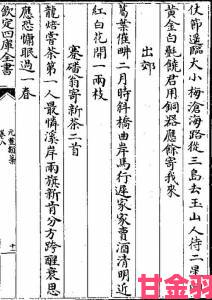 仗節遥臨大小梅滄海路從三島去玉山人待二星
黃金白㲲饒君用銅器應餘寄我來
出郊
葛葉催畊二月時斜橋曲岸馬行遲家家賣酒清明近
紅白花開一兩枝
蹇磻翁寄新茶二首
龍焙嘗茶第一人最憐溪岸兩旗新肯分方跨醒衰思
應恐慵眠過一春
欽定四庫全書
元豐類藁
卷八
十一
甘金羽